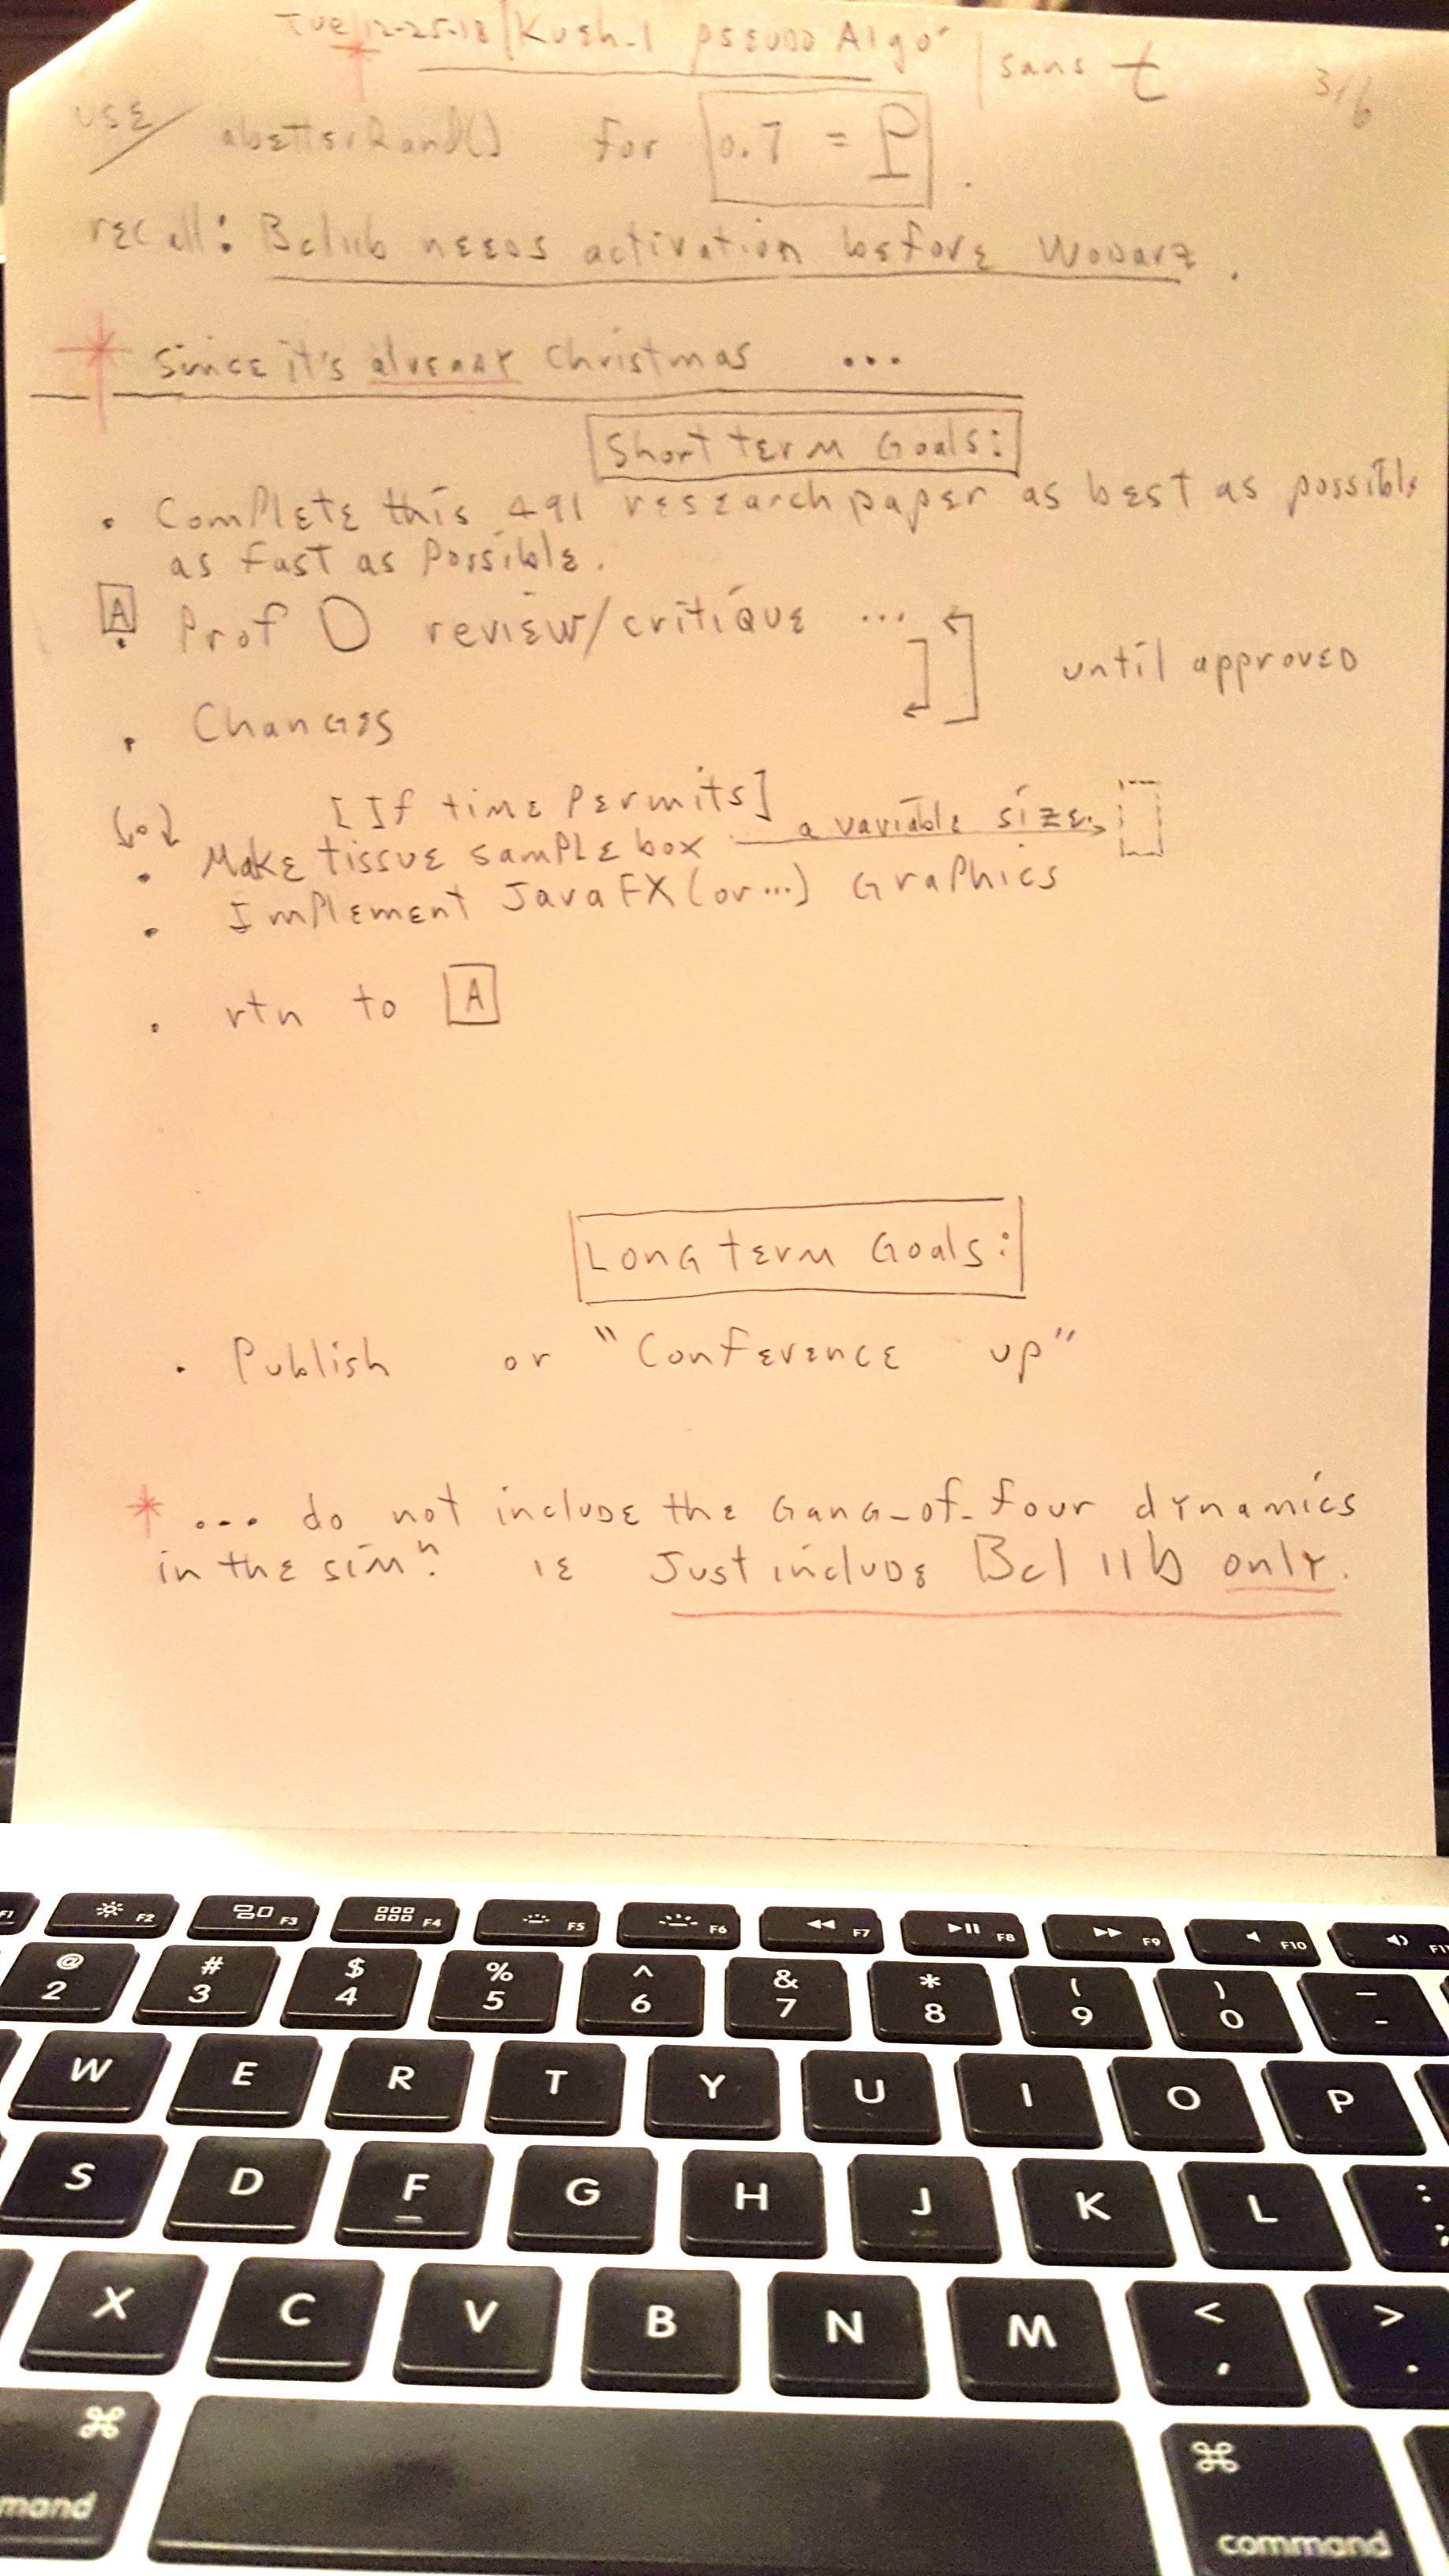 Tue 12-25-18 | Kush-1 pseudo Algo | sans t 3/6
USE/ abetterRand() for 0.7 = P.
recall: Bcl11b needs activation before Wodarz.
* Since it's already Christmas ...
Short term Goals:
• Complete this 491 research paper as best as possible
as fast as possible.
A
• Prof D review/critique ...
until approved
• Changes
[If time permits]
• Make tissue sample box a variable size
• Implement JavaFX (or...) Graphics
• rtn to A
Long term Goals:
• Publish or "Conference up"
* ... do not include the Gang-of-four dynamics
in the simⁿ. ie Just include Bcl11b only.
F1 F2 F3 F4 F5 F6 F7 F8 F9 F10 F11
@ 2 # 3 $ 4 % 5 ^ 6 & 7 * 8 ( 9 ) 0 _ -
W E R T Y U I O P
S D F G H J K L : ;
X C V B N M < , > .
⌘ ⌘
command